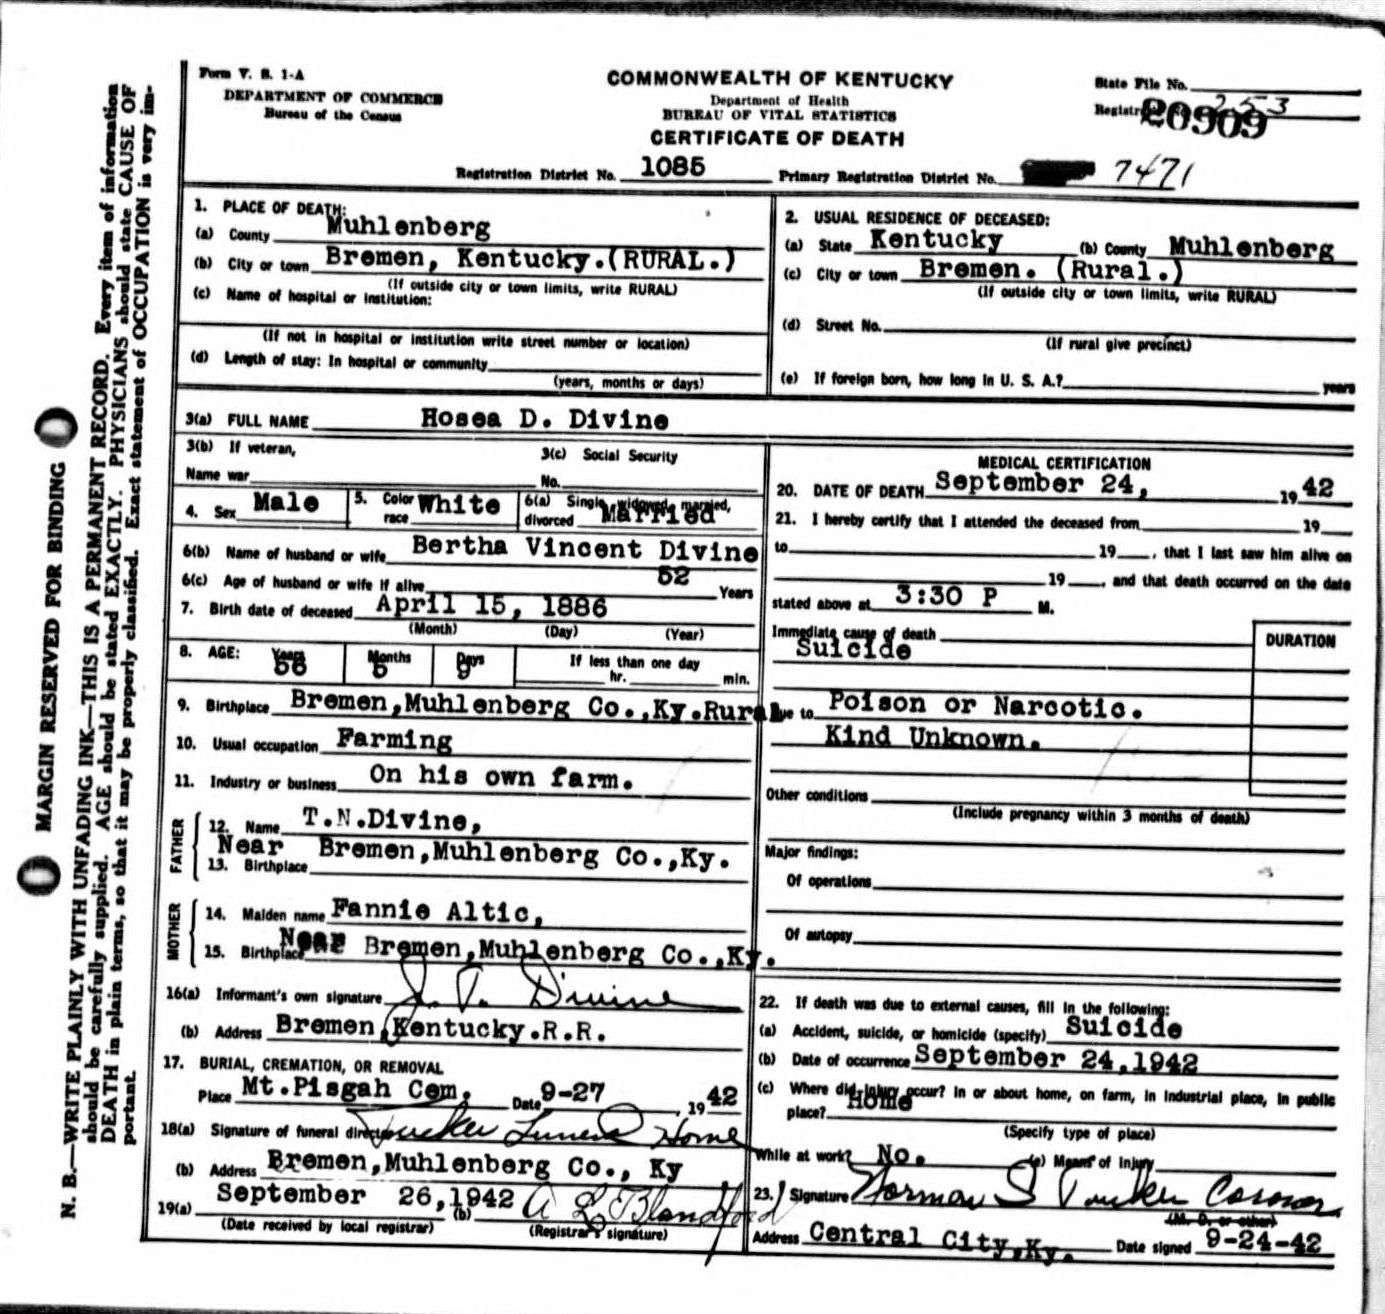 Form V. S. 1-A
DEPARTMENT OF COMMERCE
Bureau of the Census
COMMONWEALTH OF KENTUCKY
Department of Health
BUREAU OF VITAL STATISTICS
CERTIFICATE OF DEATH
State File No.
Registr 253
20909
Registration District No. 1085
Primary Registration District No. 7471
1. PLACE OF DEATH:
(a) County Muhlenberg
(b) City or town Bremen, Kentucky.(RURAL.)
(If outside city or town limits, write RURAL)
(c) Name of hospital or institution:
(If not in hospital or institution write street number or location)
(d) Length of stay: In hospital or community
(years, months or days)
2. USUAL RESIDENCE OF DECEASED:
(a) State Kentucky (b) County Muhlenberg
(c) City or town Bremen. (Rural.)
(If outside city or town limits, write RURAL)
(d) Street No.
(If rural give precinct)
(e) If foreign born, how long in U. S. A.? years
3(a) FULL NAME Hosea D. Divine
3(b) If veteran,
Name war
3(c) Social Security
No.
4. Sex Male
5. Color race White
6(a) Single, widowed, married,
divorced Married
6(b) Name of husband or wife Bertha Vincent Divine
6(c) Age of husband or wife if alive 52 Years
7. Birth date of deceased April 15, 1886
(Month) (Day) (Year)
8. AGE: Years 56 Months 5 Days 9 If less than one day
hr. min.
9. Birthplace Bremen,Muhlenberg Co.,Ky.Rural
10. Usual occupation Farming
11. Industry or business On his own farm.
FATHER
12. Name T.N.Divine,
13. Birthplace Near Bremen,Muhlenberg Co.,Ky.
MOTHER
14. Maiden name Fannie Altic,
15. Birthplace Near Bremen,Muhlenberg Co.,Ky.
16(a) Informant's own signature J. P. Divine
(b) Address Bremen,Kentucky.R.R.
17. BURIAL, CREMATION, OR REMOVAL
Place Mt.Pisgah Cem. Date 9-27, 1942
18(a) Signature of funeral director Tucker Funeral Home
(b) Address Bremen,Muhlenberg Co., Ky
19(a) September 26,1942 (b) A L Blandford
(Date received by local registrar) (Registrar's signature)
MEDICAL CERTIFICATION
20. DATE OF DEATH September 24, 1942
21. I hereby certify that I attended the deceased from 19
to 19 , that I last saw him alive on
19 , and that death occurred on the date
stated above at 3:30 P M.
Immediate cause of death
Suicide
DURATION
Due to Poison or Narcotic.
Kind Unknown.
Other conditions
(Include pregnancy within 3 months of death)
Major findings:
Of operations
Of autopsy
22. If death was due to external causes, fill in the following:
(a) Accident, suicide, or homicide (specify) Suicide
(b) Date of occurrence September 24,1942
(c) Where did injury occur? In or about home, on farm, in industrial place, in public
place? Home
(Specify type of place)
While at work? No. (e) Means of Injury
23. Signature Norman S Tucker Coroner
(M. D. or other)
Address Central City,Ky. Date signed 9-24-42
MARGIN RESERVED FOR BINDING
N. B.—WRITE PLAINLY WITH UNFADING INK—THIS IS A PERMANENT RECORD. Every item of information
should be carefully supplied. AGE should be stated EXACTLY. PHYSICIANS should state CAUSE OF
DEATH in plain terms, so that it may be properly classified. Exact statement of OCCUPATION is very im-
portant.